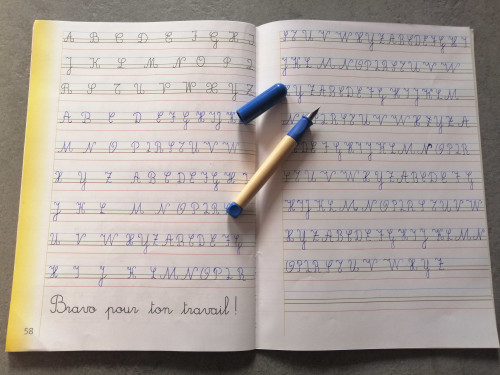 A B C D E F G H I
J K L M N O P Q
R S T U V W X Y Z
A B C D E F G H I J K
M N O P Q R S T U V W
X Y Z A B C D E F G H I
J K L M N O P Q R S
U V W X Y Z A B C D E F G
H I J K L M N O P Q R
Bravo pour ton travail !
58
S T U V W X Y Z A B C D E F G H I
J K L M N O P Q R S T U V W
X Y Z A B C D E F G H I J K L M
N O P Q R S T U V W X Y Z A
D E F G H I J K L M N O P Q R
S T U V W X Y Z A B C D E F G
H I J K L M N O P Q R S T U V W
X Y Z A B C D E F G H I J K L M N
O P Q R S T U V W X Y Z